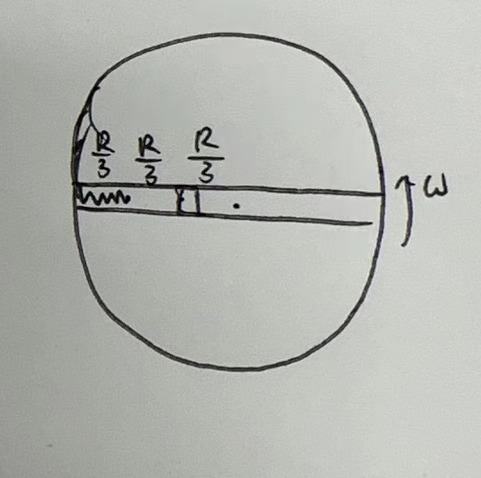 R/3 R/3 R/3
ω